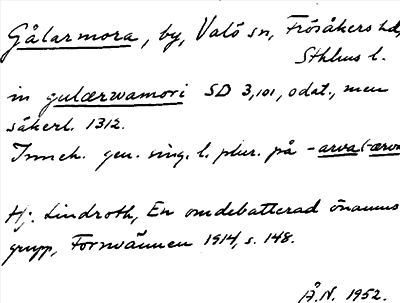 Gålarmora, by, Valö sn, Frösåkers hd,
Sthlms l.
in gulærwamori SD 3,101, odat., men
säkerl. 1312.
Inneh. gen. sing. l. plur. på -arva(-ærva
Hj. Lindroth, En omdebatterad önamns-
grupp, Fornvännen 1914, s. 148.
Å.N. 1952.